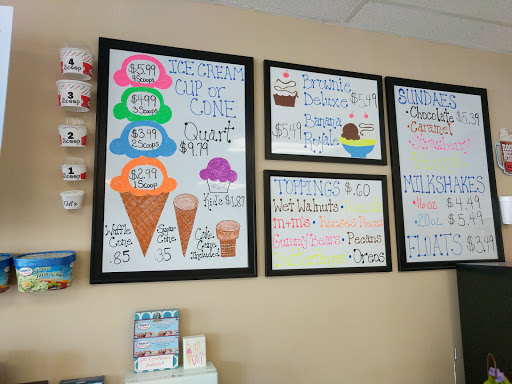 4
Scoop
3
Scoop
2
Scoop
1
Scoop
Kid's
ICE CREAM
CUP or
CONE
$5.99
4 Scoops
$4.99
3 Scoops
$3.99
2 Scoops
$2.99
1 Scoop
Quart
$9.79
Kid's $1.87
Waffle
Cone
.85
Sugar
Cone
.35
Cake
Cones
Included
Brownie
Deluxe $5.49
Banana
$5.49 Royale
TOPPINGS $.60
Wet Walnuts •
m+m's • Reese's Pieces
Gummy Bears • Pecans
• Oreos
SUNDAES
• Chocolate $5.39
• Caramel
• Strawberry
MILKSHAKES
• 16 oz $4.49
• 20 oz $5.49
FLOATS $3.99